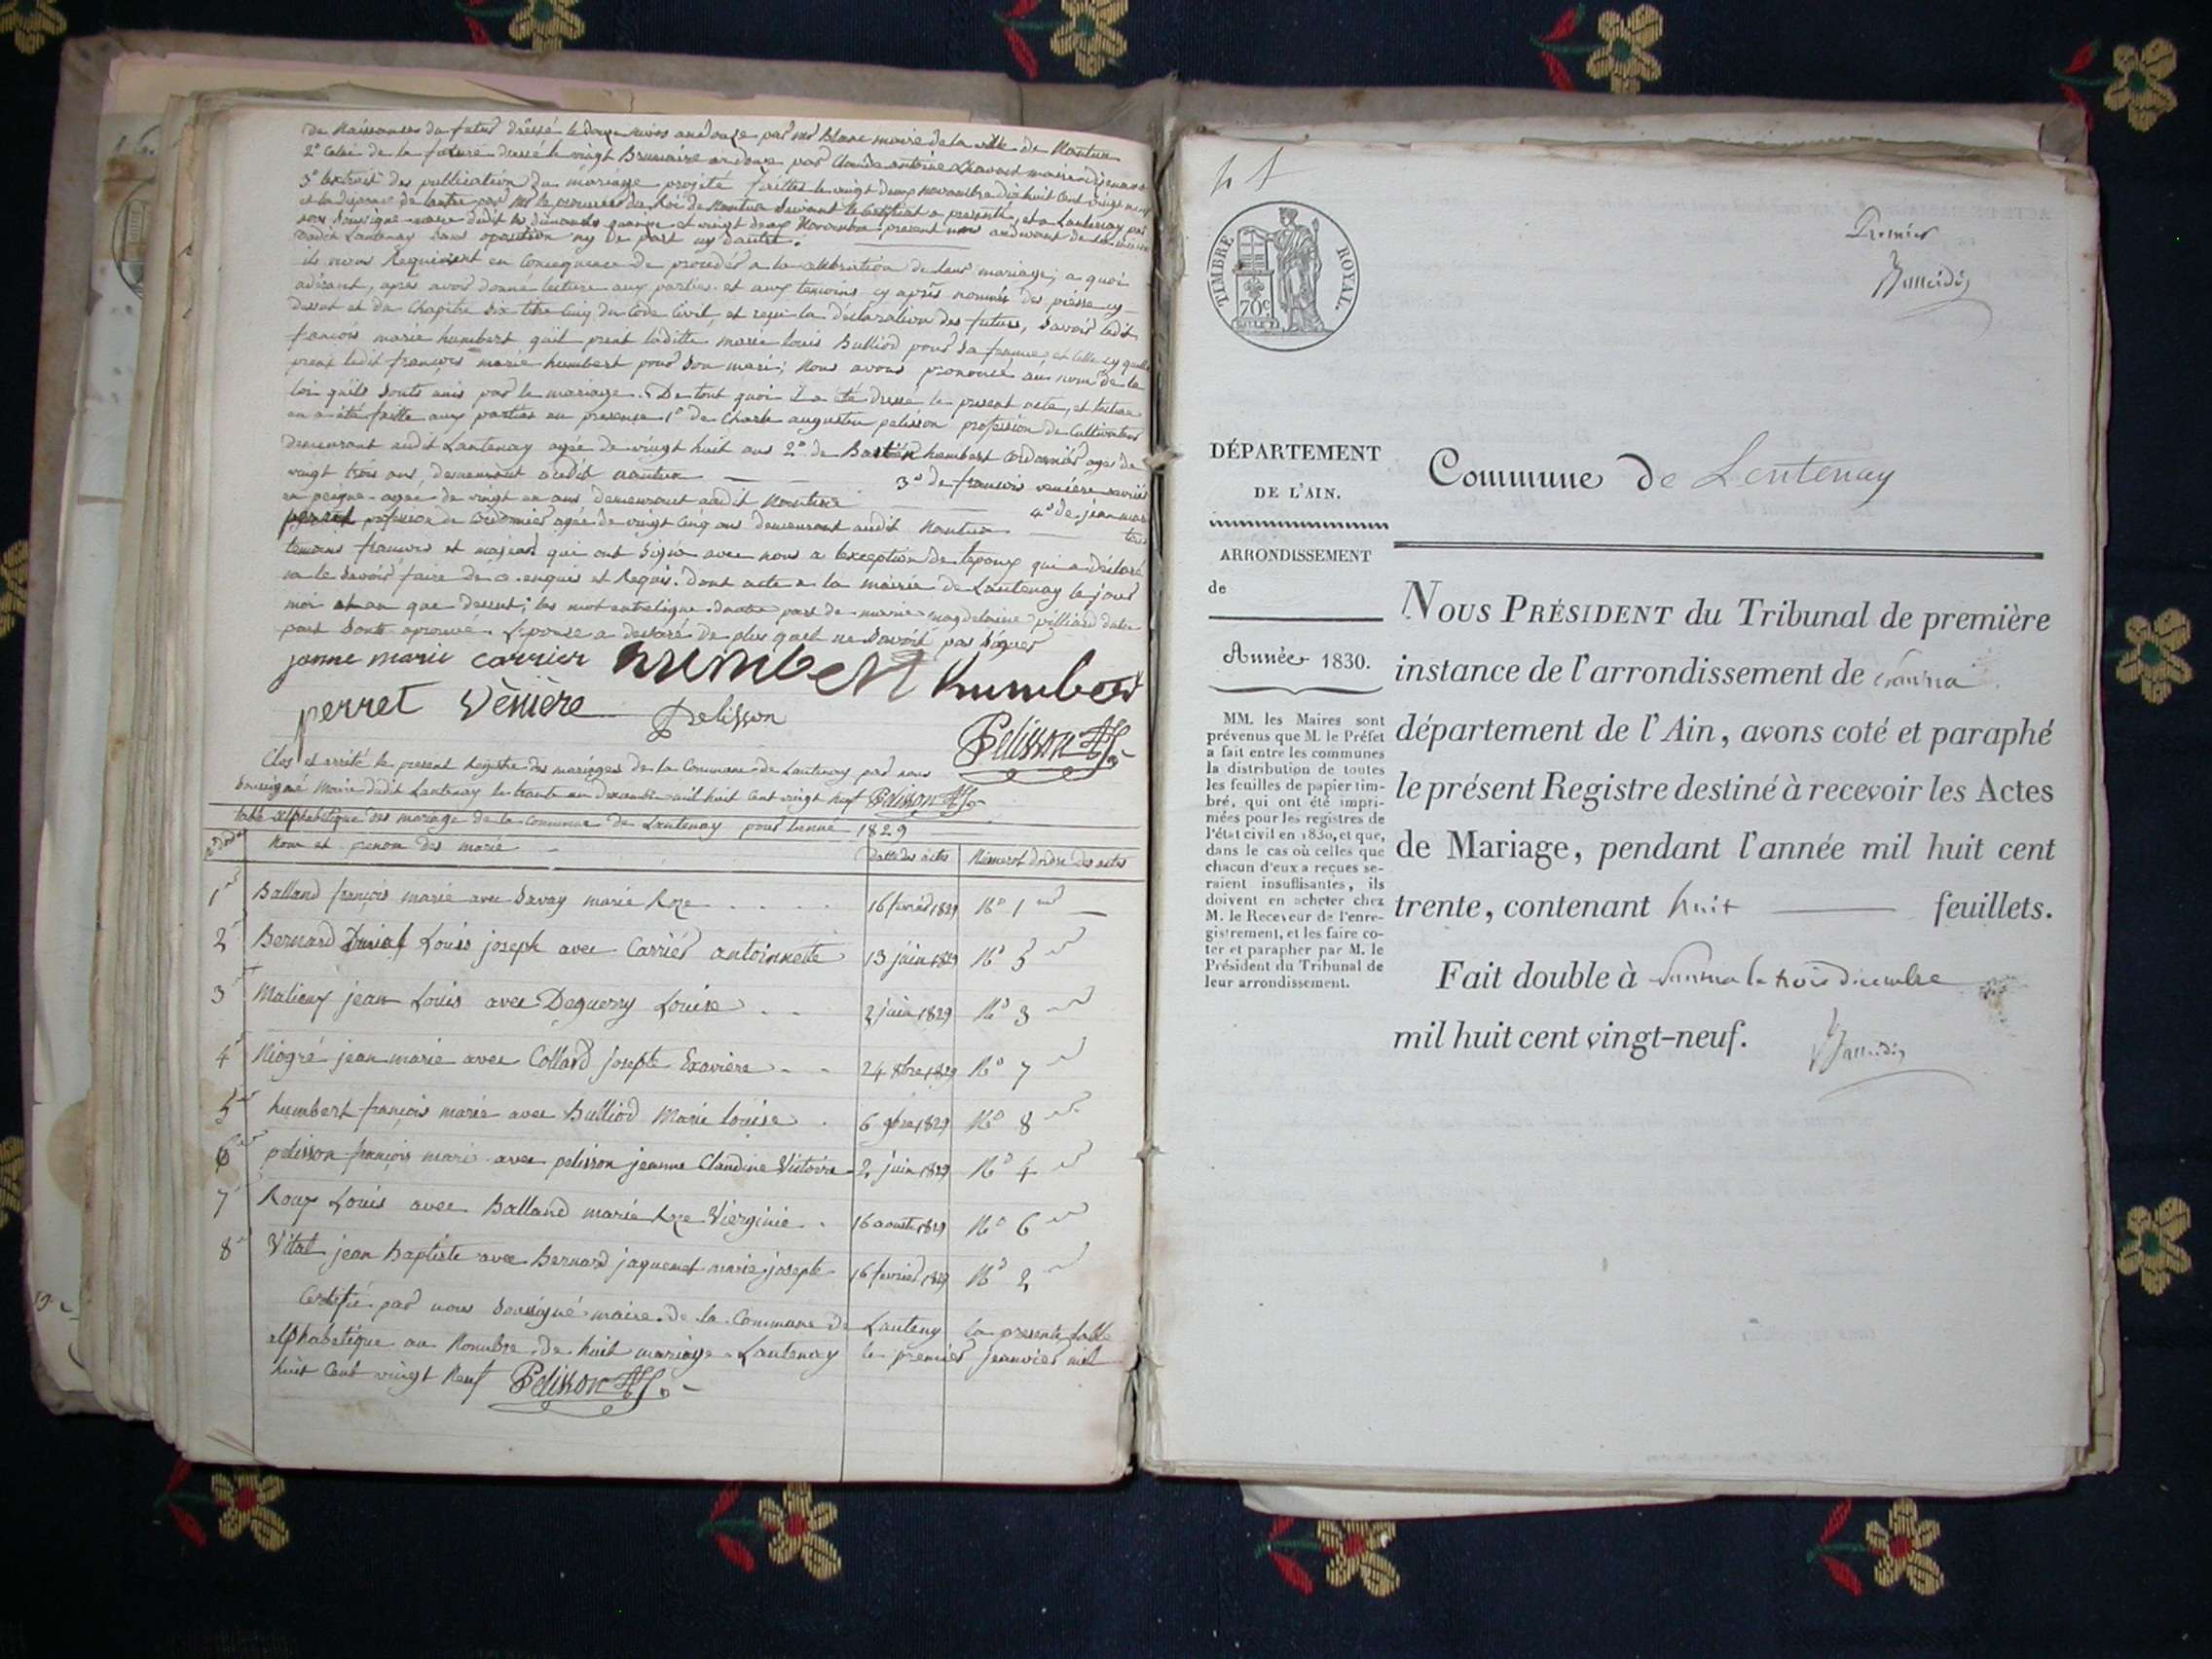 De Naissances du futur dréssé le douze nivos an douze par mr Blanc maire de la ville de Nantua
2° Celui de la future dressé le vingt Brumaire an douze par Claude antoine
3° lextrait des publication du mariage projeté faittes le vingt deux novembre dix huit Cent vingt neuf
et la dispense de lautre par Mr le procureur du Roi de Nantua suivant le Certificat a presenté, et a Lantenay par
nous soussigné maire dudit les dimanche quinze et vingt deux Novembre present mois audevant de
dudit Lantenay sans oposition ny de part ny dautre.
ils nous Requierent en Consequence de proceder a la celebration de leur mariage; a quoi
adérant, apres avoir donné lecture aux parties et aux temoins cy aprês nommés des pièsse cy
dessus et du Chapitre six titre cinq du Code Civil, et reçu la déclaration des futurs, savoir ledit
francois marie humbert quil prent laditte marie louis Bulliod pour sa femme, et celle cy quelle
prent ledit françois marie humbert pour son mari; Nous avons prononcé au nom de la
loi quils sonts unis par le mariage. De tout quoi il a été dressé le present acte, et lecture
en a été faitte aux parties en presence 1° de Charle augustin pelisson profession de Cultivateur
demeurant audit Lantenay agée de vingt huit ans 2° de Bastién humbert Cordonnier agés de
vingt trois ans, demeurant audit nantua 3° de francois veniere ouvrier
en peigne agée de vingt un ans demeurant audit Nantua 4° de jean marie
perret profession de Cordonnier agée de vingt Cinq ans demeurant audit Nantua tous
temoins francais et majeurs qui ont signé avec nous a lexception de lepoux qui a déclaré
ne le savoir faire de ce enquis et Requis. Dont acte a la mairie de Lantenay le jour
moi et an que dessus; les mot entreligne dautre part de marie magdelaine pilliard dautre
part sonts aprouvé. Lepouse a declaré de plus quel ne savoit pas signer
janne marie carrier humbert humbert
perret Vènière Pelisson
Pelisson
Clos et arrété le present Registre des mariages de la Commune de Lantenay par nous
soussigné Maire dudit Lantenay le trante un decembre mil huit Cent vingt neuf Pelisson
table alphabetique des mariage de la commune de Lantenay pour lanné 1829
Nom et prenom des marié Datte des actes Numerot dordre des actes
1 Balland françois marie avec Savay marie Roze 16 fevrier 1829 No 1
2 Bernard Louis joseph avec Carrier antoinnette 13 juin 1829 No 5
3 Malieux jean Louis avec Deguerry Louise 2 juin 1829 No 3
4 Niogré jean marie avec Collard Josepte Exaviere 24 8bre 1829 No 7
5 humbert françois marie avec Bulliod Marie louise 6 Xbre 1829 No 8
6 pelisson françois marie avec pelisson jeanne Claudine Victoire 2 juin 1829 No 4
7 Roux Louis avec Balland marie Roze Vierginie 16 aoust 1829 No 6
8 Vital jean Baptiste avec Bernard jaquemet marie josepte 16 fevrier 1829 No 2
Certifié par nous soussigné maire de la Commune de Lanteny la presente table
alphabetique au Nombre de huit mariage Lantenay le premier jeanvier mil
huit Cent vingt Neuf Pelisson
Premier
TIMBRE ROYAL.
70c
DÉPARTEMENT
DE L'AIN.
Commune de Lentenay
ARRONDISSEMENT
de
Année 1830.
MM. les Maires sont
prévenus que M. le Préfet
a fait entre les communes
la distribution de toutes
les feuilles de papier tim-
bré, qui ont été impri-
mées pour les registres de
l'état civil en 1830, et que,
dans le cas où celles que
chacun d'eux a reçues se-
raient insuffisantes, ils
doivent en acheter chez
M. le Receveur de l'enre-
gistrement, et les faire co-
ter et parapher par M. le
Président du Tribunal de
leur arrondissement.
NOUS PRÉSIDENT du Tribunal de première
instance de l'arrondissement de Nantua
département de l'Ain, avons coté et paraphé
le présent Registre destiné à recevoir les Actes
de Mariage, pendant l'année mil huit cent
trente, contenant huit feuillets.
Fait double à Nantua le trois décembre
mil huit cent vingt-neuf.